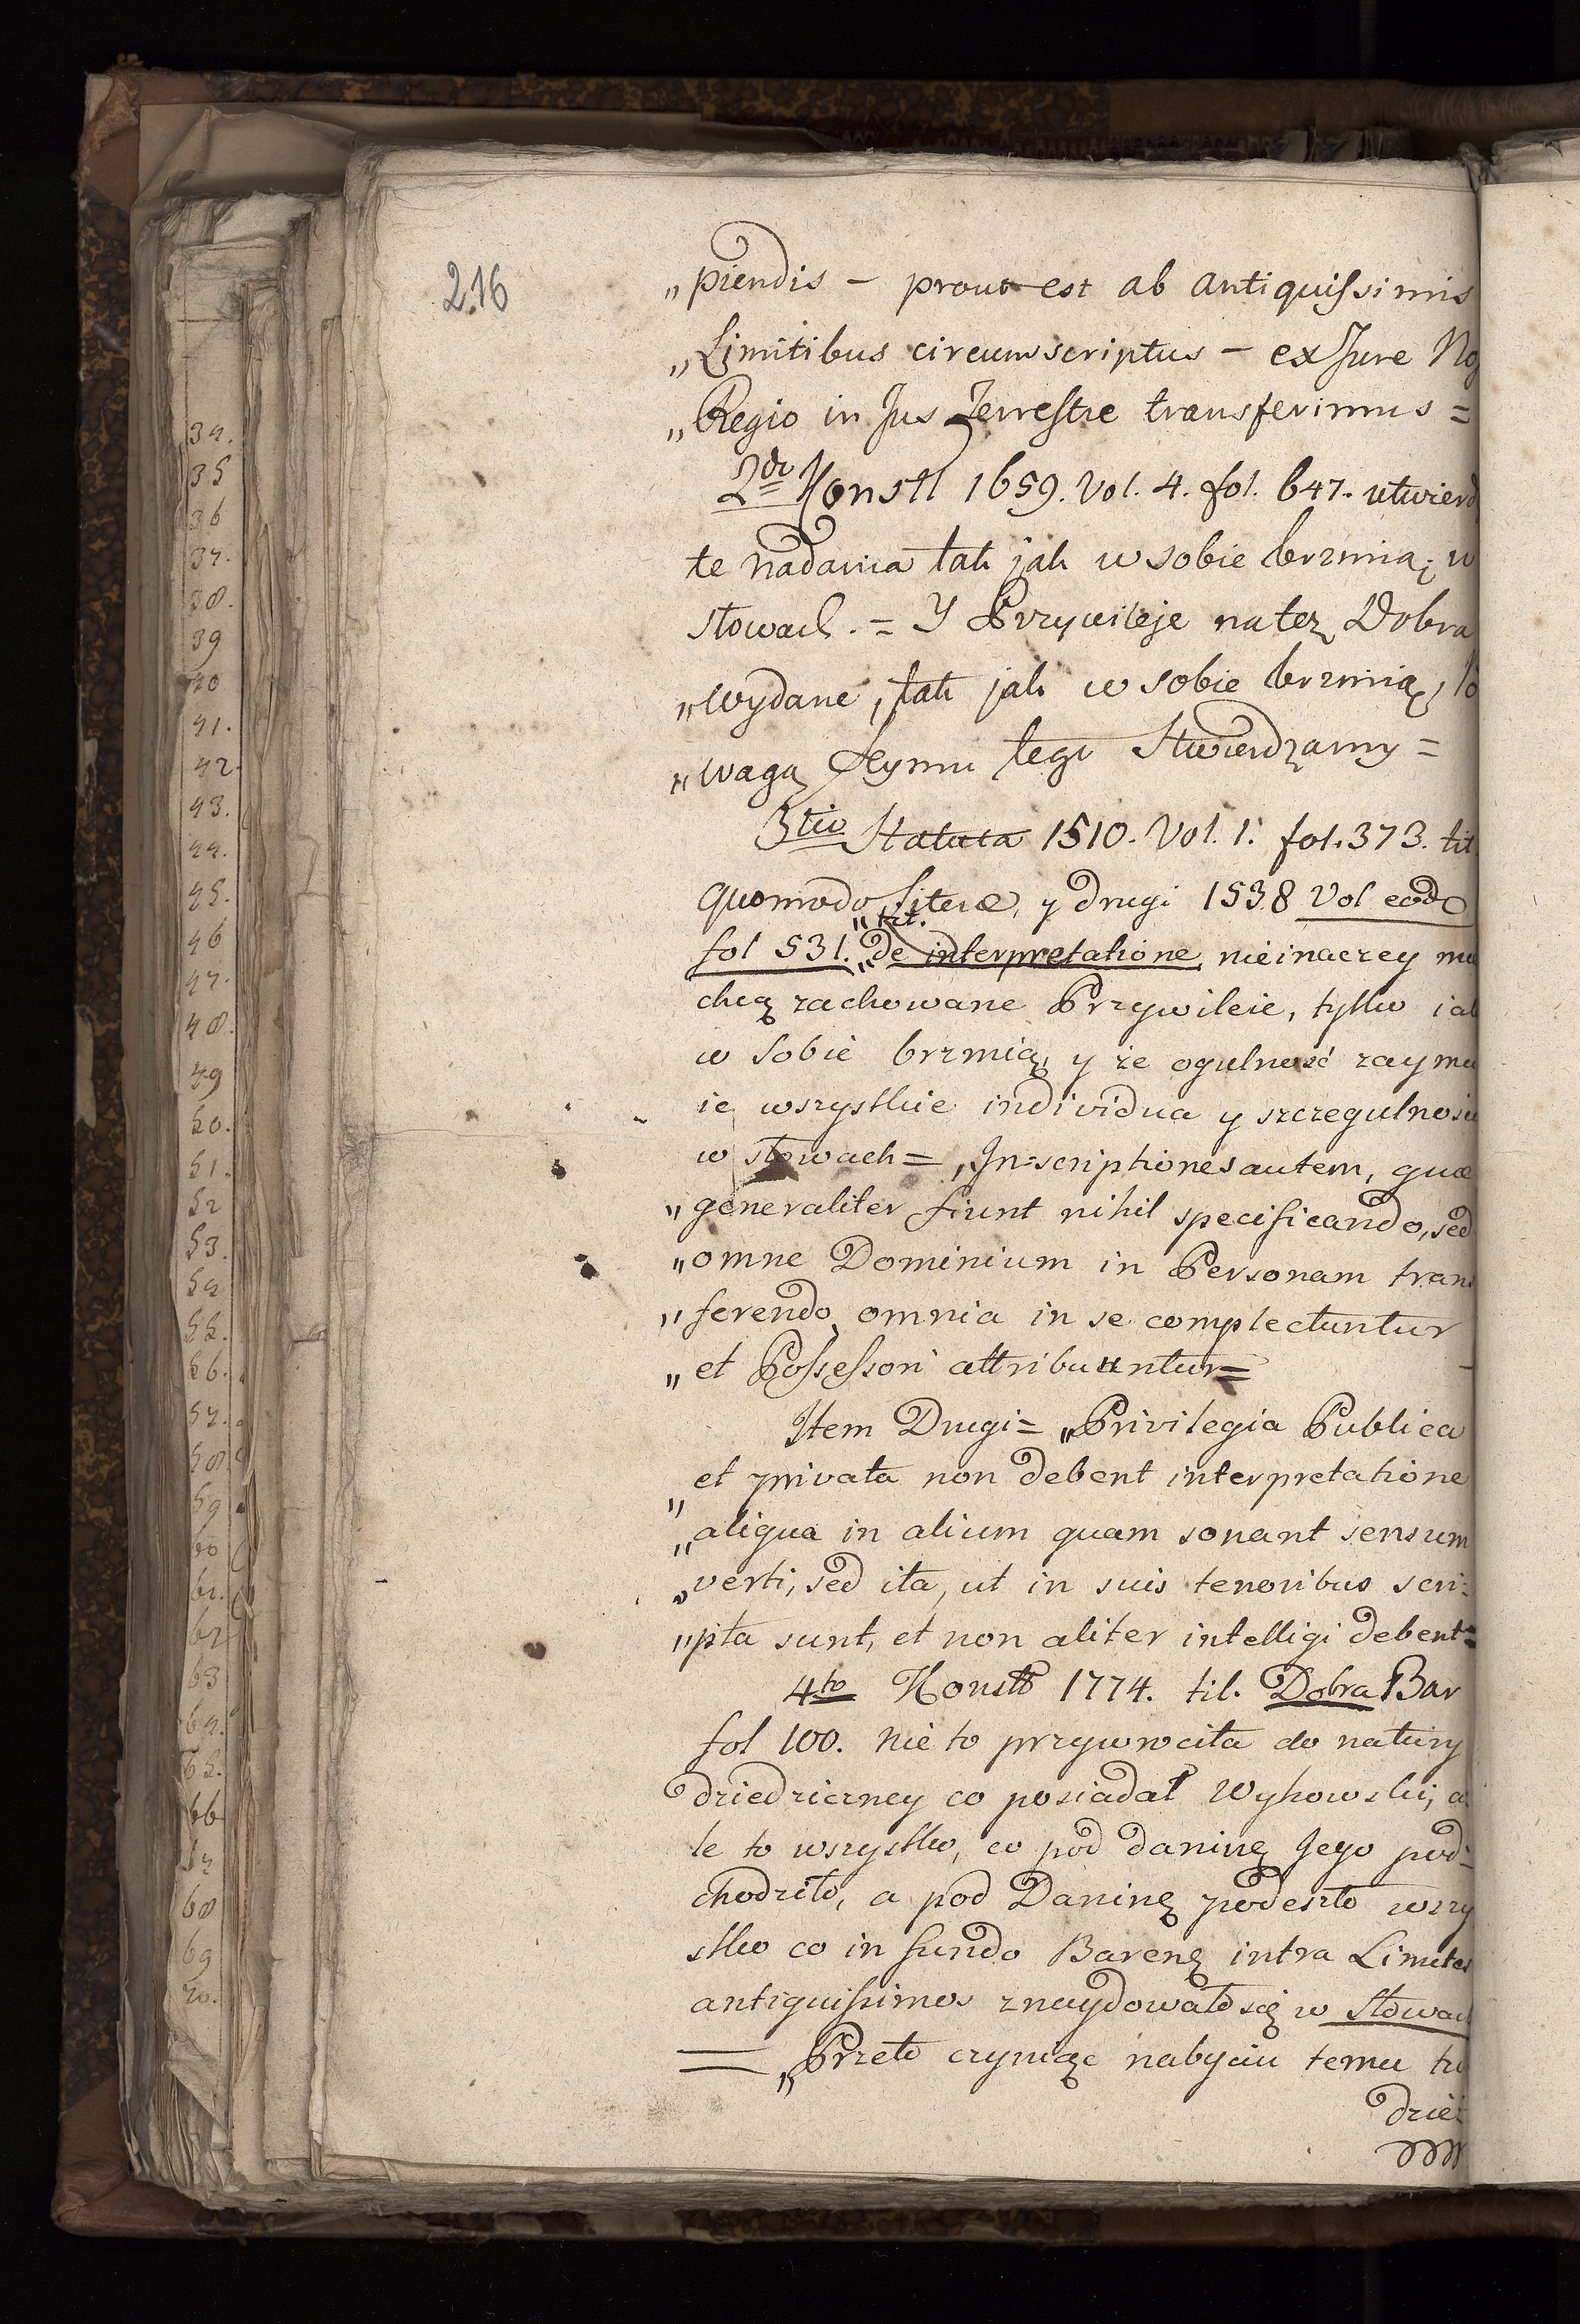 216
„piendis – prout est ab antiquissimis
„Limitibus circumscriptus – ex Jure
„Regio in Jus Terrestre transferimus =
2do Konstt 1659. Vol. 4. fol. 647. utwierd
te nadania tak jak w sobie brzmią; w
słowach. = Y Przywileje na też Dobra
„wydane, tak jak w sobie brzmią,
„wagą Seymu tego Stwierdzamy =
3tio Statuta 1510. Vol. 1. fol. 373. tit
quomodo Literæ, y drugi 1538 Vol eod
fol 531. „tit. „de interpretatione, nieinaczey
chcą zachowane Przywileie, tylko iak
w sobie brzmią, y że ogulność zaymu
ie wszystkie individua y szczegulności
w słowach =, In=scriptiones autem, quæ
„generaliter fiunt nihil specificando, sed
„omne Dominium in Personam trans
„ferendo, omnia in se complectuntur
„et Possessori attribuuntur =
Item Drugi = „Privilegia Publica
„et privata non debent interpretatione
„aliqua in alium quam sonant sensum
„verti, sed ita, ut in suis tenoribus scri=
„pta sunt, et non aliter intelligi debent =
4to Konstt 1774. tit. Dobra Bar
fol 100. nie to przywrociła do natury
dziedziczney co posiadał Wyhowski, a
le to wszystko, co pod daninę Jego pod=
chodziło, a pod Daninę podeszło wszy
stko co in fundo Barenę intra Limites
antiquissimos znaydowało się w słowach
= „Przeto czyniąc nabyciu temu
dzie
34.
35
36
37.
38.
39
40
41.
42.
43.
44.
45.
46
47.
48.
49
50.
51.
52
53.
54
55.
56.
57.
58.
59
60
61.
62
63
64.
65.
66
67
68
69
70.